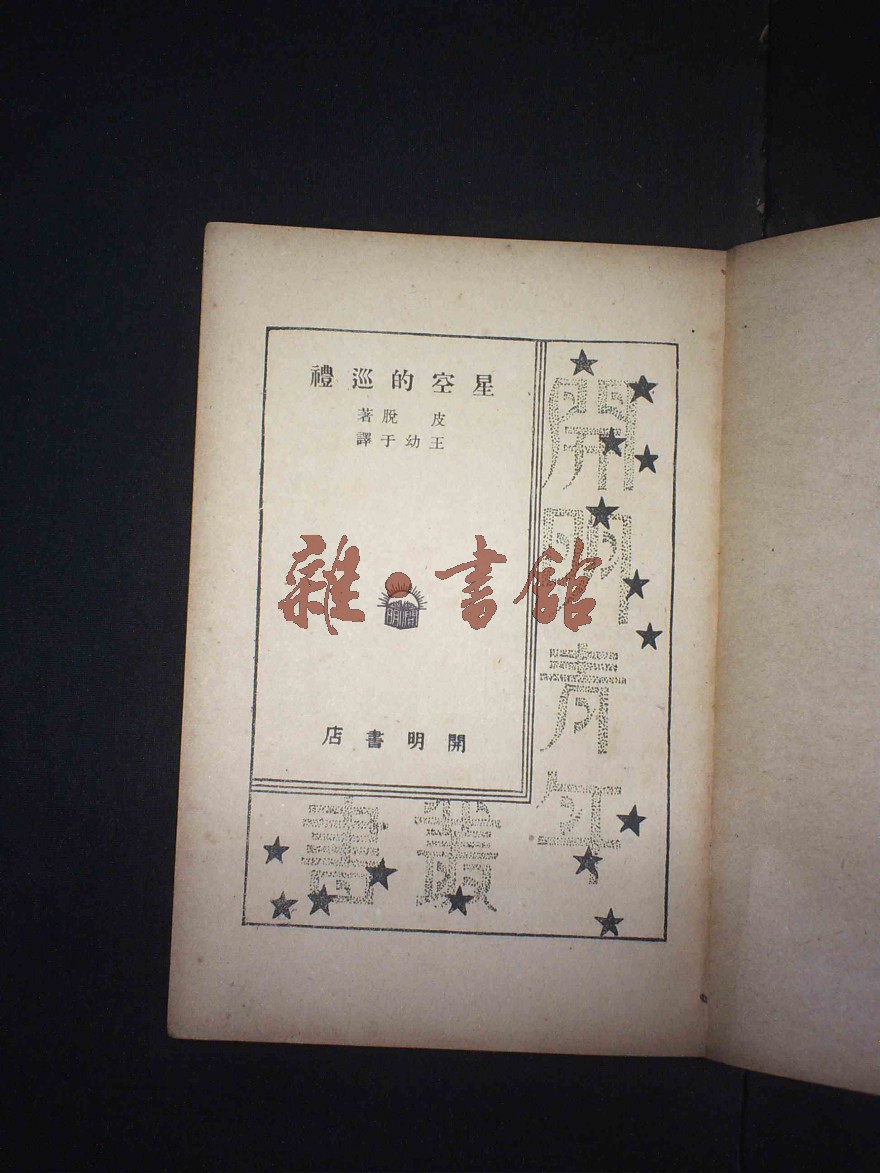 星空的巡禮
皮脫著
王幼于譯
雜·書館
開明
開明書店
開明青年
叢書